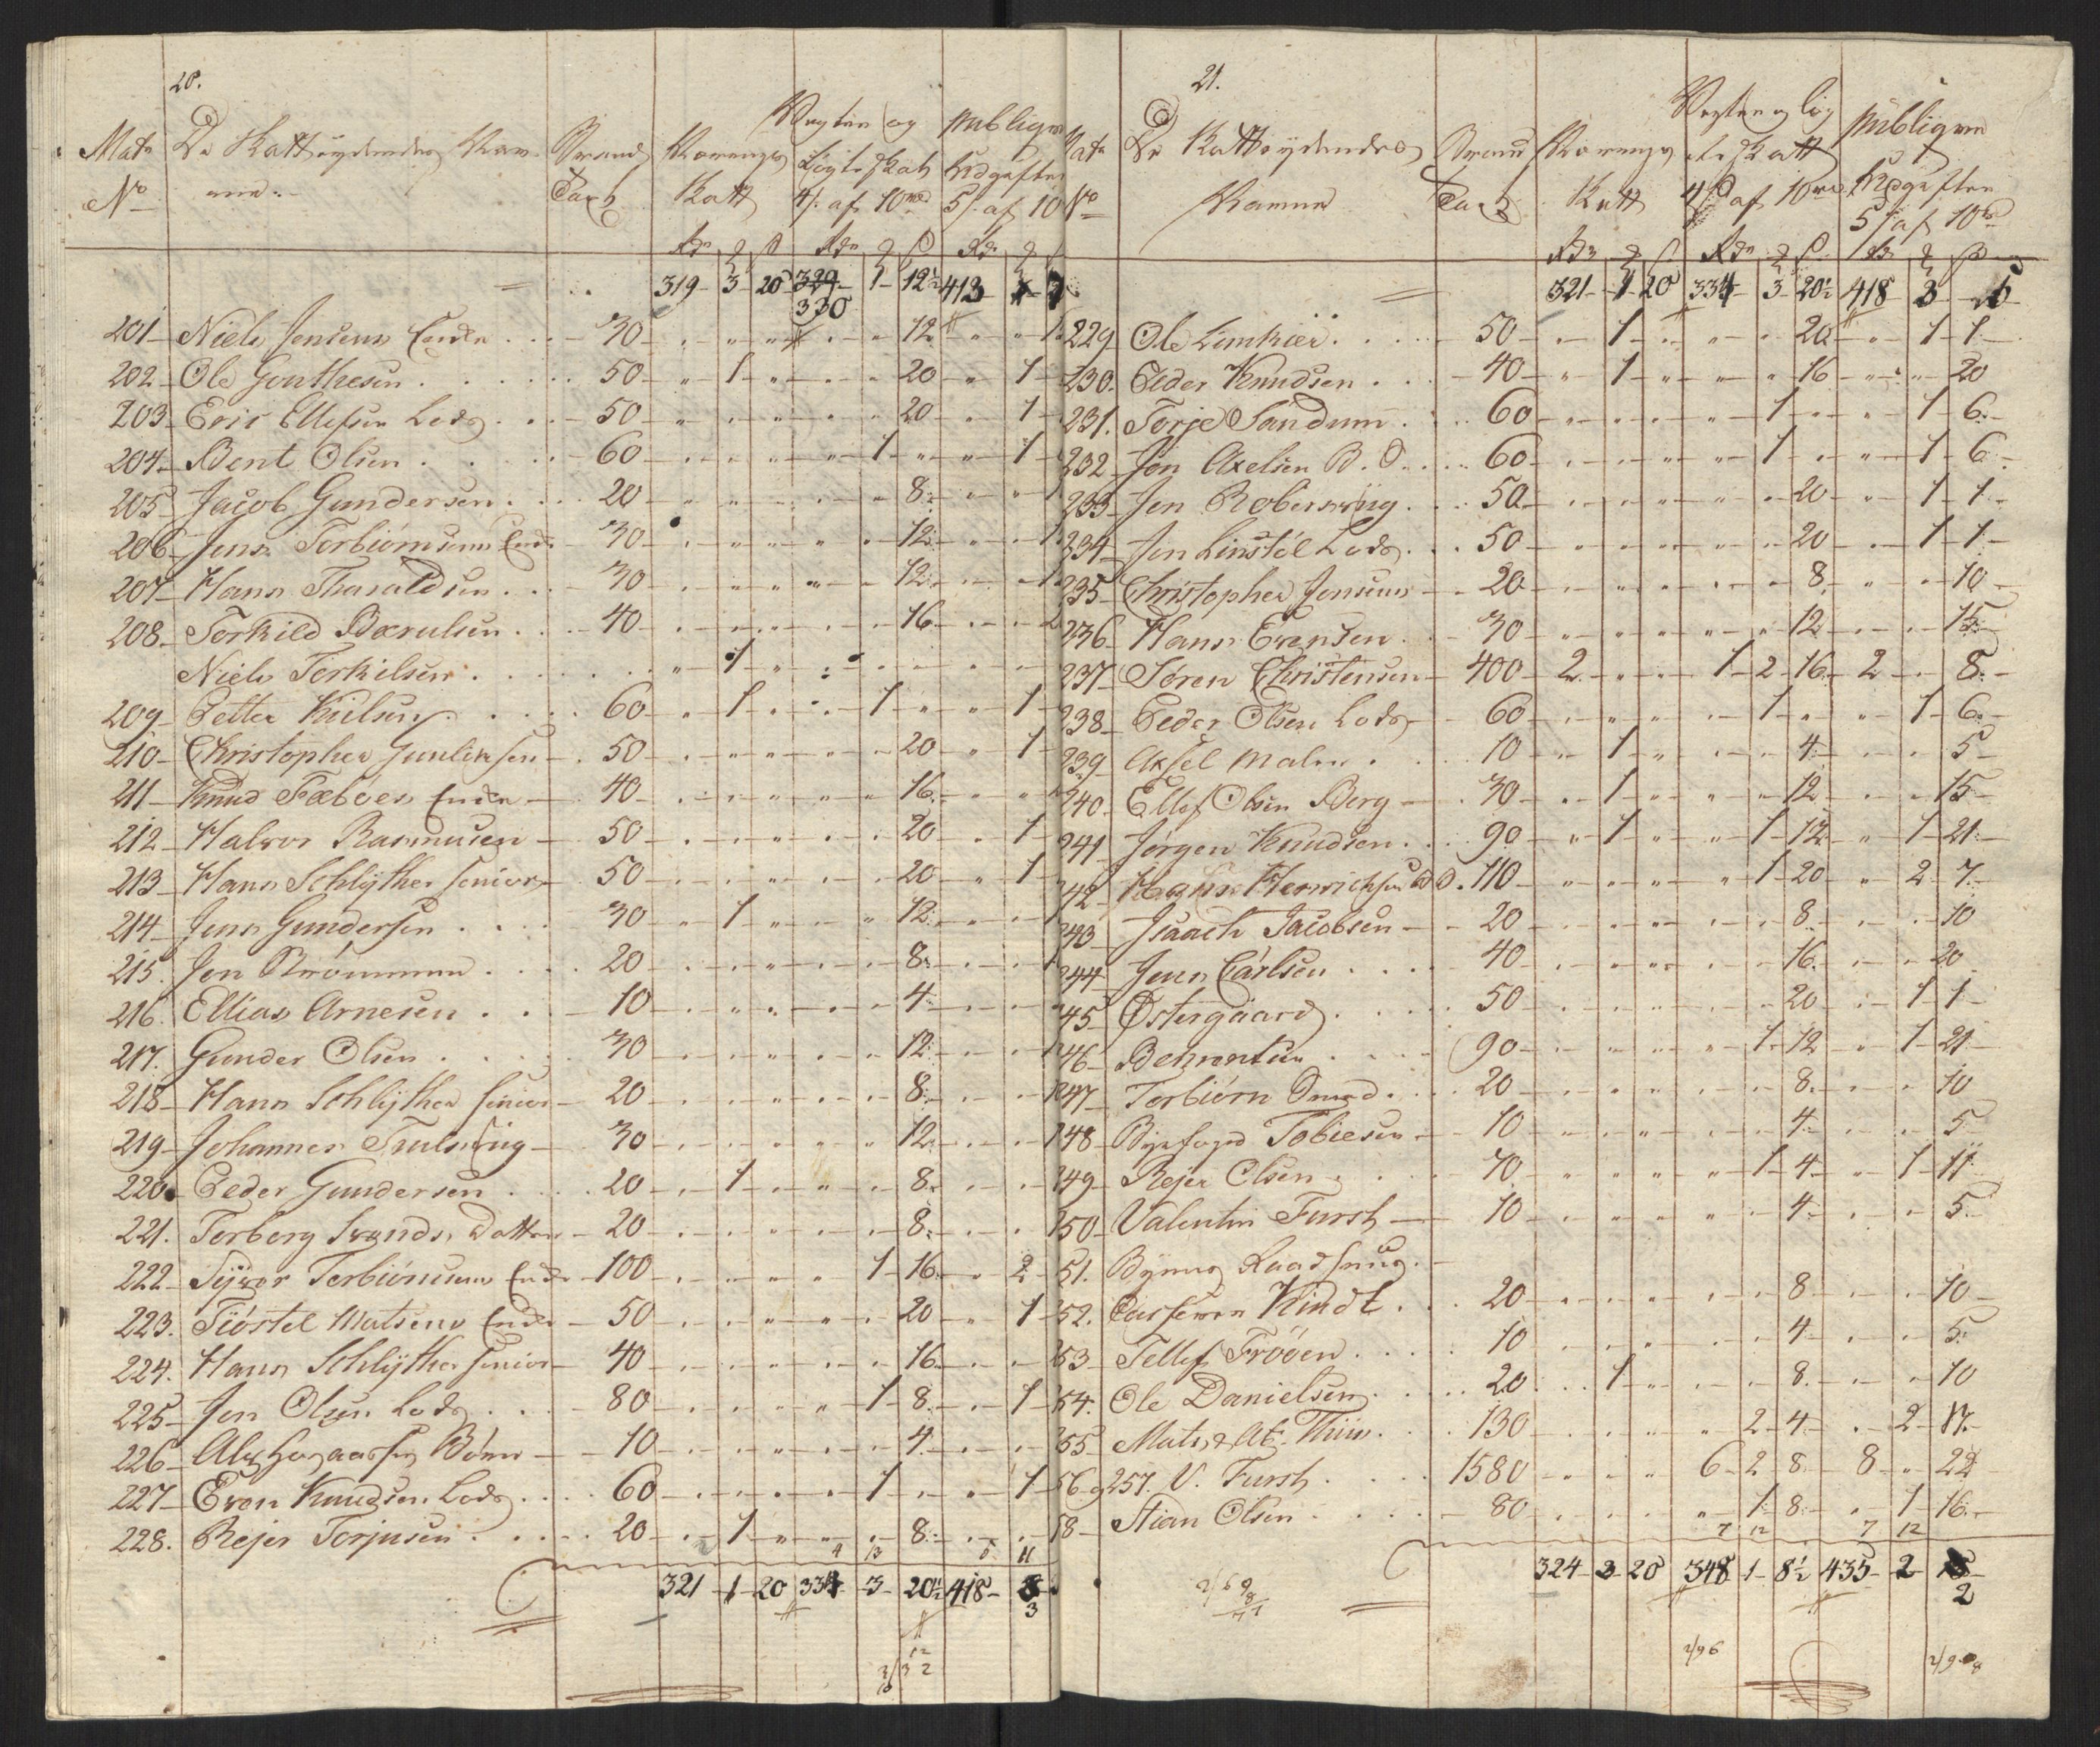 20.
Mats No De Skatteydendes Nav- Brand Nærings Vægter og publiqve
ne Taxt Skatt Løgteskatt Udgifter
4 ß af 10 rd 5 ß af 10
Rdr ß Rdr ß Rdr
319 3 20 329 1 12½ 413
330
201 Niels Jensens Encke 30 12
202 Ole Gonthesen 50 1 20 1
203 Eric Ellefsen Lods 50 20 1
204 Bent Olsen 60 1 1
205 Jacob Gundersen 20 8
206 Jens Torbiørnsens Encke 30 12
207 Hans Tharaldsen 30 12
208 Torkild Bærulsen 40 16
Niels Torkilsen 1
209 Petter Nielsen 60 1 1 1
210 Christopher Gunlichsen 50 20 1
211 Knud Fæboes Encke 40 16
212 Halvor Rasmusen 50 20 1
213 Hans Schlÿther senior 50 20 1
214 Jens Gundersen 30 1 12
215 Jon Strømmen 20 8
216 Ellias Arnesen 10 4
217 Gunder Olsen 30 12
218 Hans Schlÿther senior 20 8
219 Johannes Trulsvig 30 12
220 Peder Gundersen 20 1 8
221 Torborg Svends Datter 20 8
222 Syver Torbiørnsens Encke 100 1 16 2
223 Tiøstel Matsens Encke 50 20 1
224 Hans Schlÿther senior 40 16
225 Jon Olsen Lods 80 1 8 1
226 Børn 10 4
227 Even Knudsen Lods 60 1 1
228 Rejer Torjusen 20 1 8
321 1 20 334 3 20½ 418 3
21.
Mats No De Skatteydendes Brand Nærings Vægter og Løg publiqve
Navne Taxt Skatt te Skatt Udgifter
4 ß af 10 rd 5 ß af 10 rd
Rdr ß Rdr ß Rdr ß
321 1 20 334 3 20½ 418 3
229 Ole Limkier 50 1 20 1 1
230 Peder Knudsen 40 1 16 20
231 Torje Sandum 60 1 1 6
232 Jon Axelsen B. S. 60 1 1 6
233 Jen Robersvig 50 20 1 1
234 Jon Linstøl Lods 50 20 1 1
235 Christopher Jensens 20 8 10
236 Hans Evensen 30 12 15
237 Søren Christensen 400 2 1 2 16 2 8
238 Peder Olsen Lods 60 1 1 6
239 Axsel Malm 10 1 4 5
240 Ellef Olsen Berg 30 1 12 15
241 Jørgen Knudsen 90 1 1 12 1 21
242 Hans Henrichsen 110 1 20 2 7
243 Isaach Jacobsen 20 8 10
244 Jens Carlsen 40 16 20
45 Østergaard 50 20 1 1
246 Behrentsen 90 1 12 1 21
247 Torbiørn Smed 20 8 10
248 Byefoged Tobiesen 10 4 5
249 Rejer Olsen 70 1 4 1 11
250 Valentin Fursh 10 4 5
51. Byens Raadhuus
52. Passeren Kindt 20 8 10
253 Tellef Frøoen 10 4 5
54. Ole Danielsen 20 1 8 10
255 Mats & At. Thiis 130 2 4 2 17
56 og 257. V. Fursh 1580 6 2 8 8 22
58 Stian Olsen 80 1 8 1 16
324 3 20 348 1 8½ 435 2
2